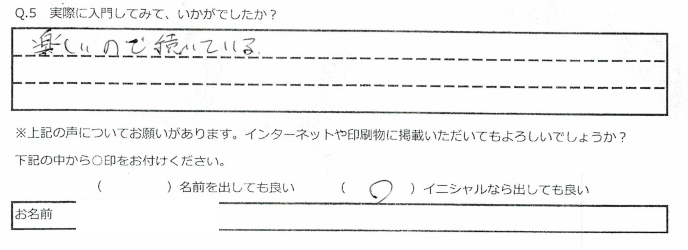 Q.5 実際に入門してみて、いかがでしたか？
楽しいので続いている。
※上記の声についてお願いがあります。インターネットや印刷物に掲載いただいてもよろしいでしょうか？
下記の中から○印をお付けください。
（　　　　）名前を出しても良い　　　（　○　）イニシャルなら出しても良い
お名前